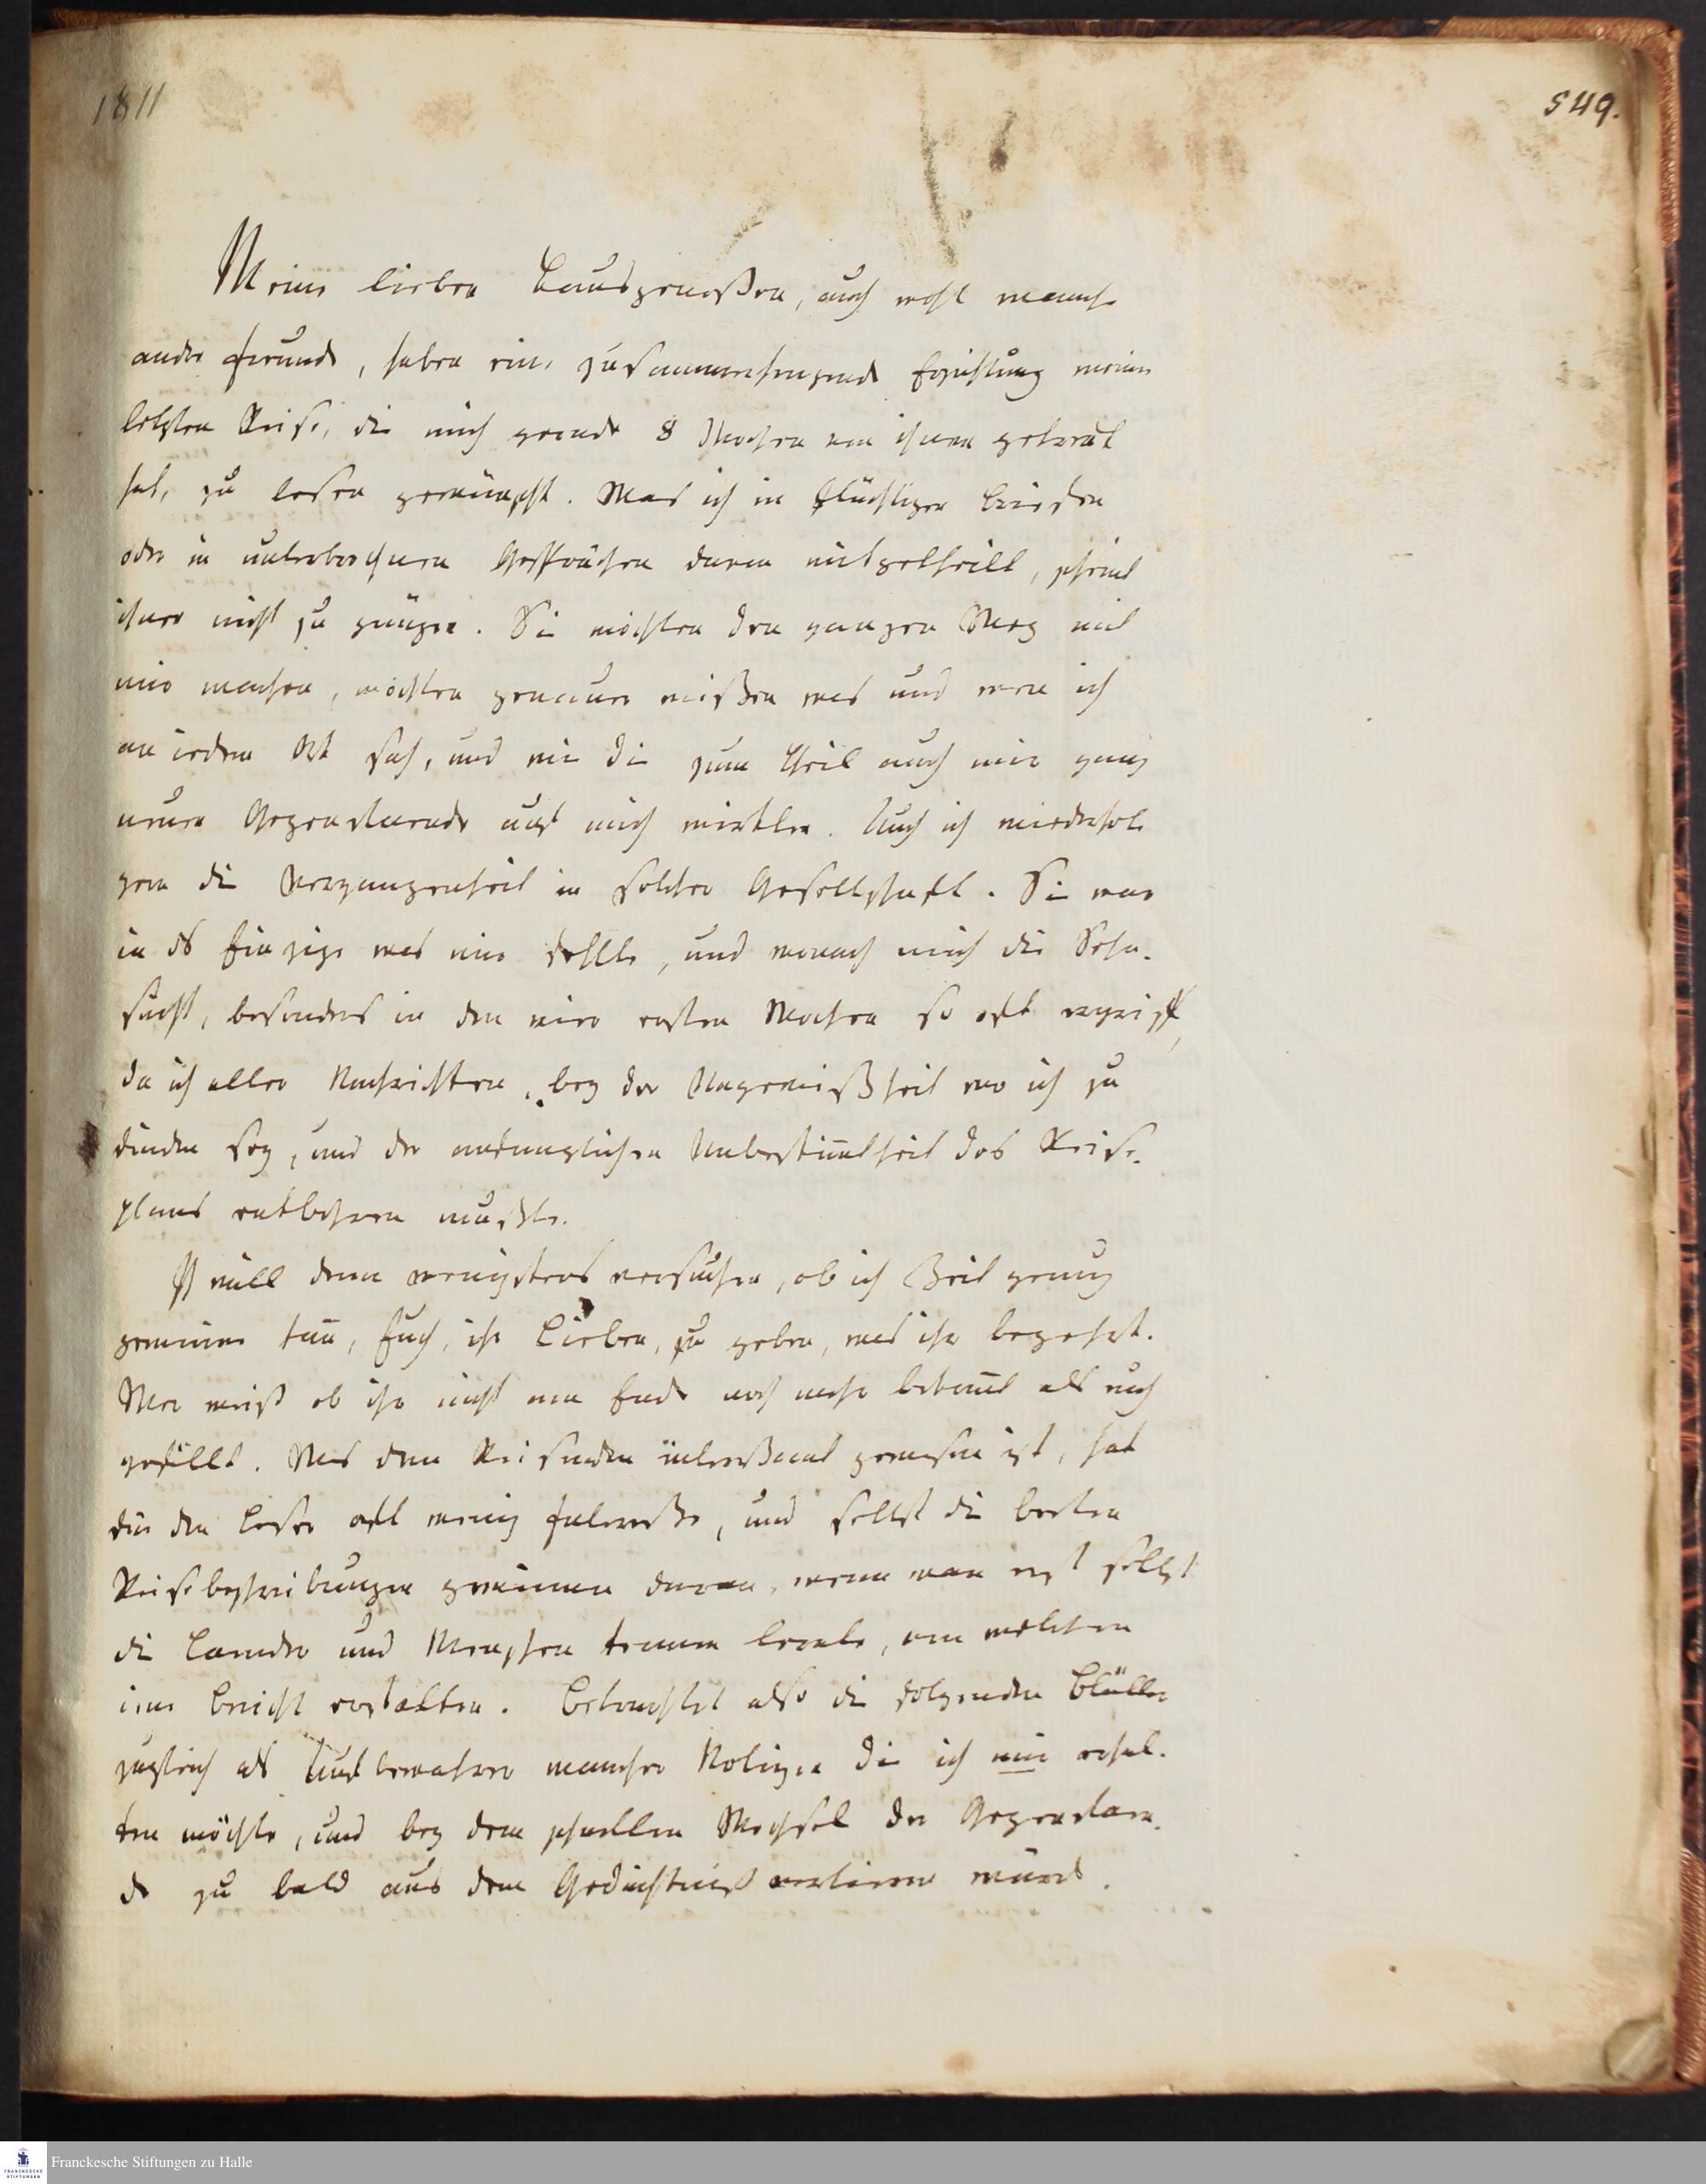 1811
549.
Meine lieben Hausgenoßen, auch wohl manche
andre Freunde, haben eine zusammenhengende Erzählung meiner
letzten Reise, die mich gerade 8 Wochen von ihnen getrent
hat, zu lesen gewünscht. Was ich in flüchtigen Briefen
oder in unterbrochnen Gesprächen davon mitgetheilt, scheint
ihnen nicht zu gnügen. Sie möchten den ganzen Weg mit
mir machen, möchten genauer wißen was und wen ich
an jedem Ort sah, und wie die zum Theil auch mir ganz
neuen Gegenstaende auf mich wirkten. Auch ich wiederhole
gern die Vergangenheit in solcher Gesellschaft. Sie war
ja das Einzige was mir fehlte, und wonach mich die Sehn-
sucht, besonders in den vier ersten Wochen so oft ergriff,
da ich aller Nachrichten, bey der Ungewißheit wo ich zu
finden sey, und der anfanglichen Unbestimtheit des Reise-
plans entbehren mußte.
Ich will denn wenigstens versuchen, ob ich Zeit genug
gewinnen kann, Euch, ihr Lieben, zu geben, was ihr begehrt.
Wer weiß ob ihr nicht am Ende noch mehr bekommt als euch
gefällt. Was dem Reisenden interessant gewesen ist, hat
für den Leser oft wenig Interesse, und selbst die besten
Reisebeschreibungen gewinnen davon, wenn man erst selbst
die Laender und Menschen kennen lernte, von welchen
jene Bericht erstatten. Betrachtet also die folgenden Blätter
zugleich als Aufbewahrer mancher Notizen die ich mir erhal-
ten möchte, und bey dem schnellen Wechsel der Gegenstaen-
de zu bald aus dem Gedächtniß verlieren würde.
Franckesche Stiftungen zu Halle